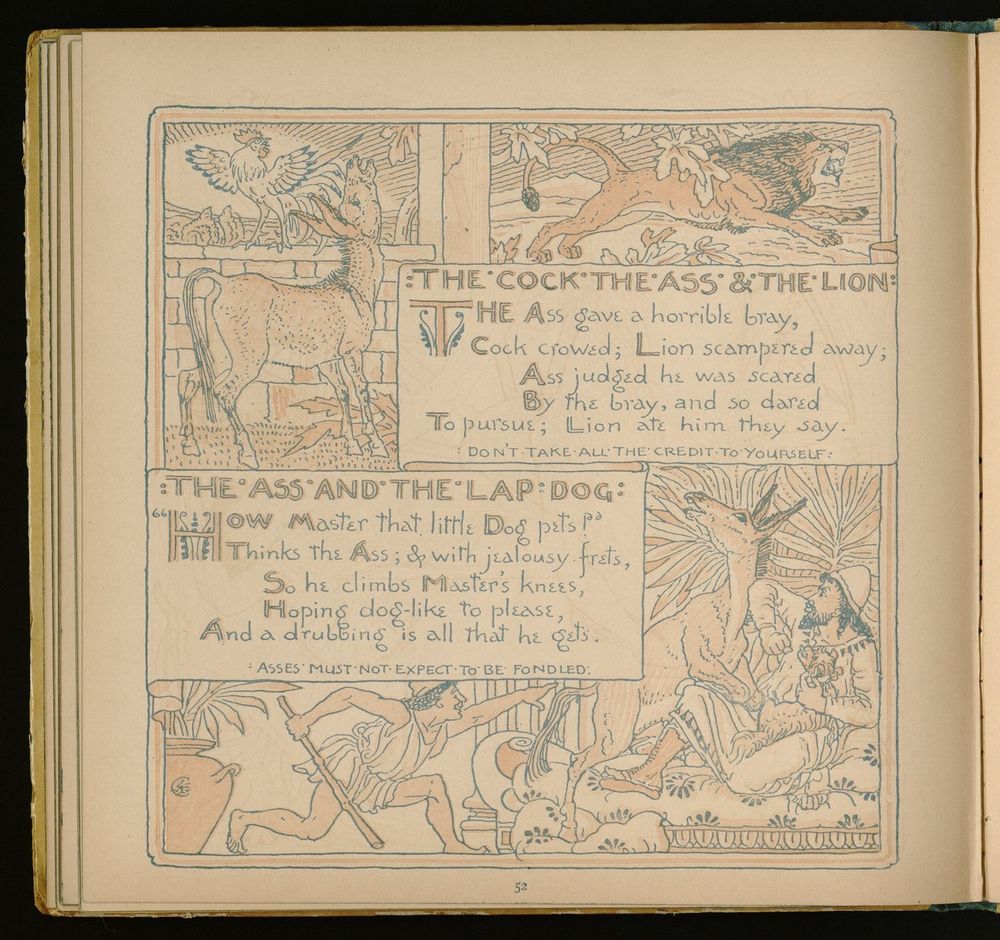 :THE·COCK·THE·ASS·&·THE·LION:
THE Ass gave a horrible bray,
Cock crowed; Lion scampered away;
Ass judged he was scared
By the bray, and so dared
To pursue; Lion ate him they say.
:DON'T·TAKE·ALL·THE·CREDIT·TO·YOURSELF:
:THE·ASS·AND·THE·LAP·DOG:
"HOW Master that little Dog pets!"
Thinks the Ass; & with jealousy frets,
So he climbs Master's knees,
Hoping dog-like to please,
And a drubbing is all that he gets.
:ASSES·MUST·NOT·EXPECT·TO·BE·FONDLED:
52